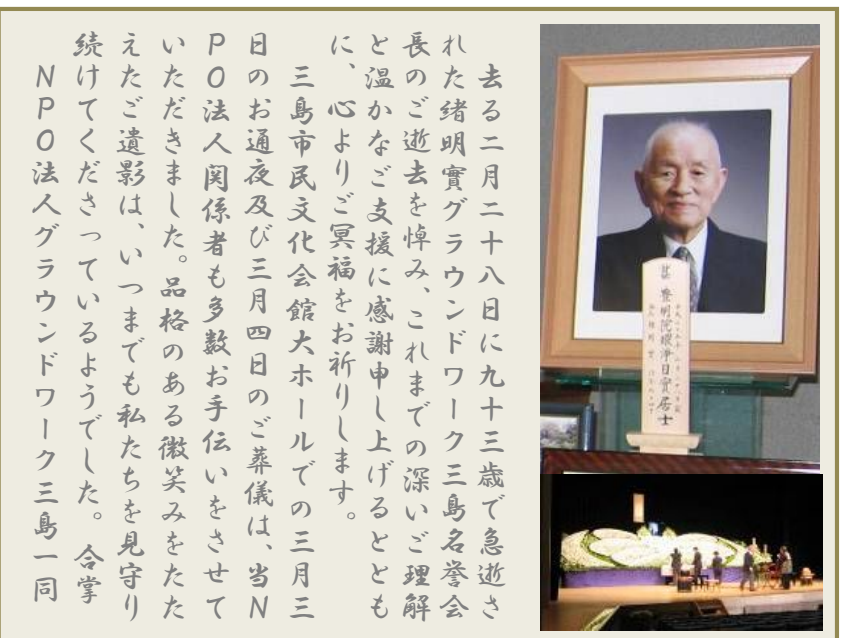 去る二月二十八日に九十三歳で急逝さ
れた緒明實グラウンドワーク三島名誉会
長のご逝去を悼み、これまでの深いご理解
と温かなご支援に感謝申し上げるととも
に、心よりご冥福をお祈りします。
三島市民文化会館大ホールでの三月三
日のお通夜及び三月四日のご葬儀は、当N
PO法人関係者も多数お手伝いをさせて
いただきました。品格のある微笑みをたた
えたご遺影は、いつまでも私たちを見守り
続けてくださっているようでした。 合掌
NPO法人グラウンドワーク三島一同
明院
淨日實居士